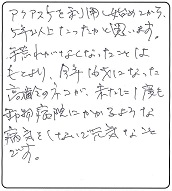 アクアス5を利用し始めてから、
5年以上たったかと思います。
手荒れがなくなったことは
もとより、今年16才になった
高齢のネコが、未だに1度も
動物病院にかかるような
病気をしないで元気なこと
です。